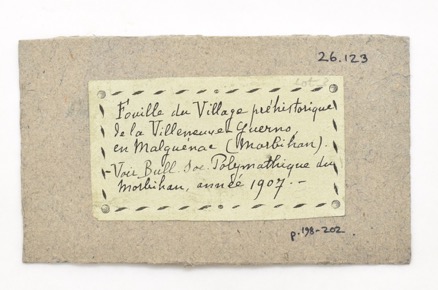 26.123
Lot 3
Fouille du Village préhistorique
de la Villeneuve-Guerno,
en Malguénac (Morbihan).
Voir Bull. Soc. Polymathique du
Morbihan, année 1907. -
p. 198-202